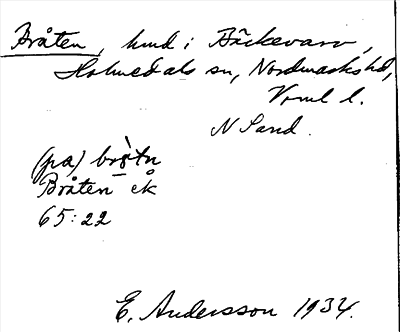 Bråten, hmd i Bäckevarv,
Holmedals sn, Nordmarks hd,
Vrml l.
N Sand.
(pa) bròtn
Bråten ek
65:22
E. Andersson 1934.